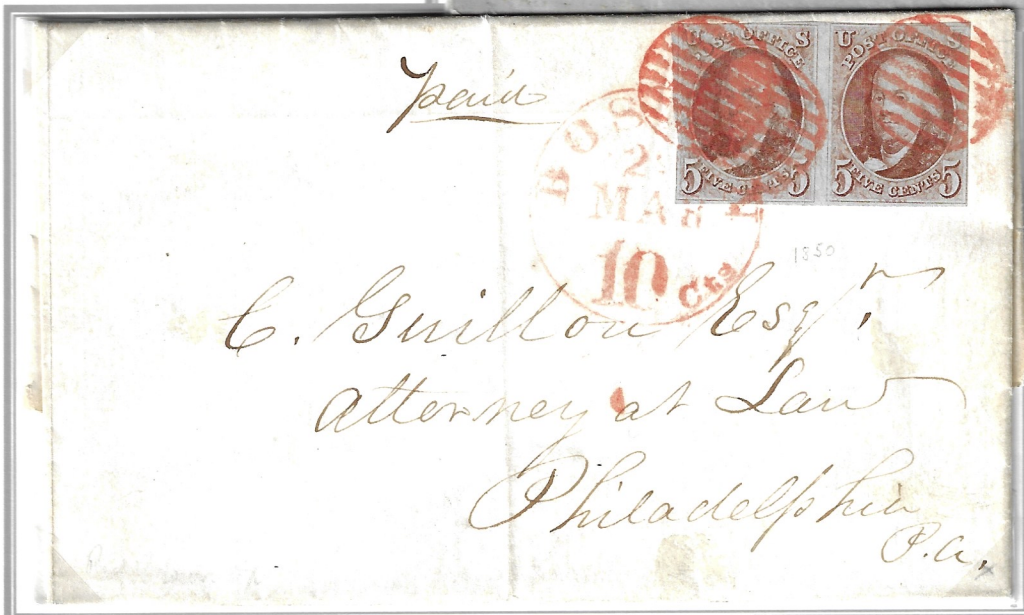 paid
U S
POST OFFICE
5 FIVE CENTS 5
U S
POST OFFICE
5 FIVE CENTS 5
BOS
MAR
10 Cts
1850
C. Guillou Esqr.
Attorney at Law
Philadelphia
P.a.